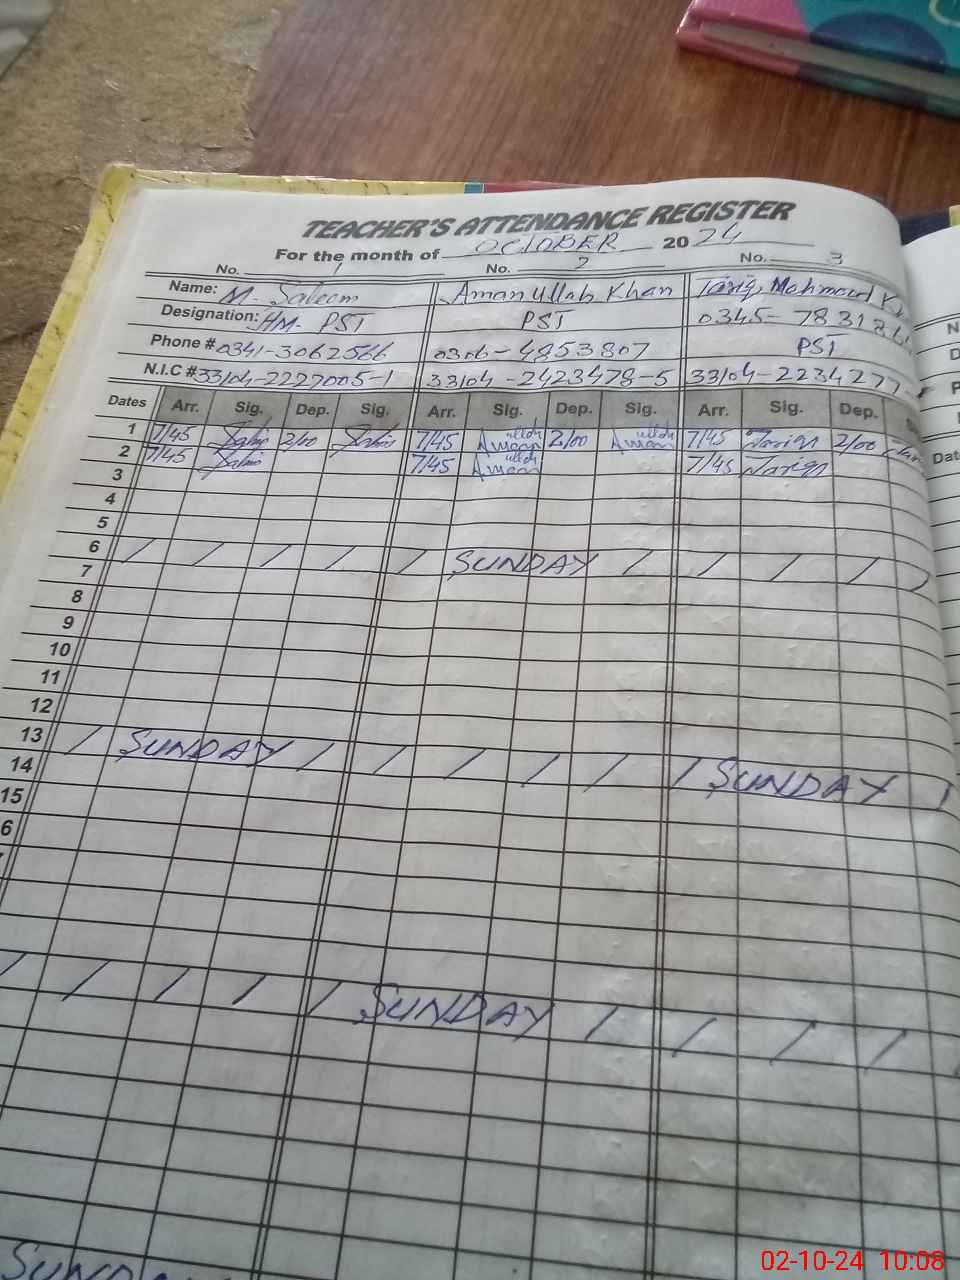 TEACHER'S ATTENDANCE REGISTER
For the month of OCTOBER 2024
No. 1 No. 2 No. 3
Name: M. Saleem Aman ullah Khan Tariq Mahmood
Designation: HM- PST PST 0345-
Phone # 0341-3062566 0306-4853807 PST
N.I.C # 33104-2227005-1 33104-2423478-5 33104-2234277
Dates Arr. Sig. Dep. Sig. Arr. Sig. Dep. Sig. Arr. Sig. Dep.
1 7/45 Salim 2/00 Salim 7/45 Aman ullah 2/00 Aman ullah 7/45 Tariq 2/00
2 7/45 Salim 7/45 Aman ullah 7/45 Tariq
3
4
5
6 / / / / / SUNDAY / / / / /
7
8
9
10
11
12
13 / SUNDAY / / / / / / SUNDAY /
14
15
6
/ / / / / SUNDAY / / / /
SUNDAY
Dat
02-10-24 10:08